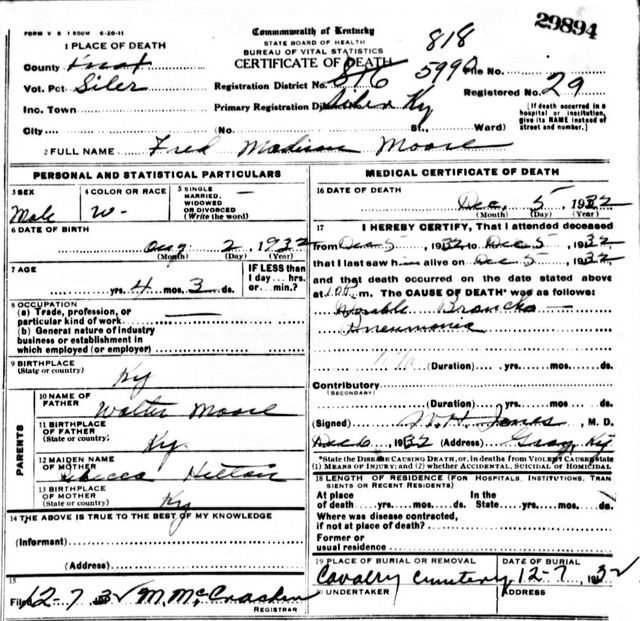 FORM V S 1 500M 6-20-11
Commonwealth of Kentucky
STATE BOARD OF HEALTH
BUREAU OF VITAL STATISTICS
CERTIFICATE OF DEATH
29894
818
1 PLACE OF DEATH
County Knox
Vot. Pct Siler
Inc. Town
City (No. St., Ward)
Registration District No. 816 5990
File No.
Primary Registration District No. Siler Ky
Registered No. 29
[If death occurred in a hospital or institution, give its NAME instead of street and number.]
2 FULL NAME Fred Madison Moore
PERSONAL AND STATISTICAL PARTICULARS
3 SEX
Male
4 COLOR OR RACE
W-
5 SINGLE
MARRIED,
WIDOWED
OR DIVORCED
(Write the word)
6 DATE OF BIRTH
Aug 2, 1932
(Month) (Day) (Year)
7 AGE
yrs. 4 mos. 3 ds.
IF LESS than
1 day... hrs.
or... min.?
8 OCCUPATION
(a) Trade, profession, or
particular kind of work
(b) General nature of industry
business or establishment in
which employed (or employer)
9 BIRTHPLACE
(State or country)
Ky
PARENTS
10 NAME OF
FATHER
Walter Moore
11 BIRTHPLACE
OF FATHER
(State or country)
Ky.
12 MAIDEN NAME
OF MOTHER
Hilton
13 BIRTHPLACE
OF MOTHER
(State or country)
Ky
14 THE ABOVE IS TRUE TO THE BEST OF MY KNOWLEDGE
(Informant)
(Address)
15
Filed 12-7 32 M. McCracken
REGISTRAR
MEDICAL CERTIFICATE OF DEATH
16 DATE OF DEATH
Dec, 5 1932
(Month) (Day) (Year)
17 I HEREBY CERTIFY, That I attended deceased
from Dec 5, 1932 to Dec 5, 1932
that I last saw him alive on Dec 5, 1932
and that death occurred on the date stated above
at m. The CAUSE OF DEATH* was as follows:
Double Broncho
Pneumonia
(Duration) yrs. mos. ds.
Contributory
(SECONDARY)
(Duration) yrs. mos. ds.
(Signed) Jones, M. D.
Dec 6, 1932 (Address) Gray, Ky
*State the DISEASE CAUSING DEATH, or, in deaths from VIOLENT CAUSES state
(1) MEANS OF INJURY; and (2) whether ACCIDENTAL, SUICIDAL OR HOMICIDAL
18 LENGTH OF RESIDENCE (FOR HOSPITALS, INSTITUTIONS, TRANSIENTS OR RECENT RESIDENTS)
At place
of death yrs. mos. ds.
In the
State yrs. mos. ds.
Where was disease contracted,
if not at place of death?
Former or
usual residence
19 PLACE OF BURIAL OR REMOVAL
Cavalry Cemetery
DATE OF BURIAL
12-7, 1932
20 UNDERTAKER
ADDRESS